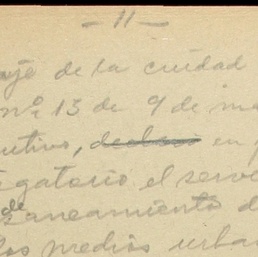 - 11 -
aje de la ciudad
nº 13 de 9 de ma
cutivo, declaró en
igatorio el serv
de
saneamiento d
los medios urba